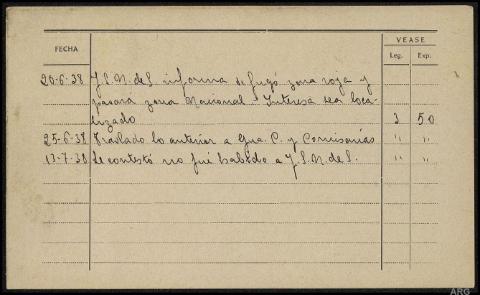 FECHA
VÉASE
Leg. Exp.
20-6-38 J.S.N. de S. informa se fugó zona roja y
pasará zona Nacional. Interesa sea loca-
lizado 3 50
25-6-38 Traslado lo anterior a Gua. C. y Comisarías " "
13-7-38 Se contestó no fué habido a J.S.N. de S. " "
ARG